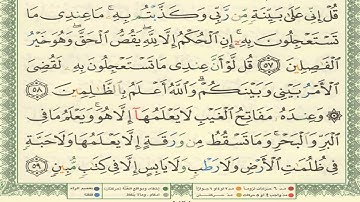 قُلْ إِنِّي عَلَىٰ بَيِّنَةٍ مِّن رَّبِّي وَكَذَّبْتُم بِهِۦ ۚ مَا عِندِي مَا
تَسْتَعْجِلُونَ بِهِۦٓ ۚ إِنِ ٱلْحُكْمُ إِلَّا لِلَّهِ ۖ يَقُصُّ ٱلْحَقَّ ۖ وَهُوَ خَيْرُ
ٱلْفَـٰصِلِينَ ٥٧ قُل لَّوْ أَنَّ عِندِي مَا تَسْتَعْجِلُونَ بِهِۦ لَقُضِيَ
ٱلْأَمْرُ بَيْنِي وَبَيْنَكُمْ ۗ وَٱللَّهُ أَعْلَمُ بِٱلظَّـٰلِمِينَ ٥٨
وَعِندَهُۥ مَفَاتِحُ ٱلْغَيْبِ لَا يَعْلَمُهَآ إِلَّا هُوَ ۚ وَيَعْلَمُ مَا فِي
ٱلْبَرِّ وَٱلْبَحْرِ ۚ وَمَا تَسْقُطُ مِن وَرَقَةٍ إِلَّا يَعْلَمُهَا وَلَا حَبَّةٍ
فِي ظُلُمَـٰتِ ٱلْأَرْضِ وَلَا رَطْبٍ وَلَا يَابِسٍ إِلَّا فِي كِتَـٰبٍ مُّبِينٍ ٥٩